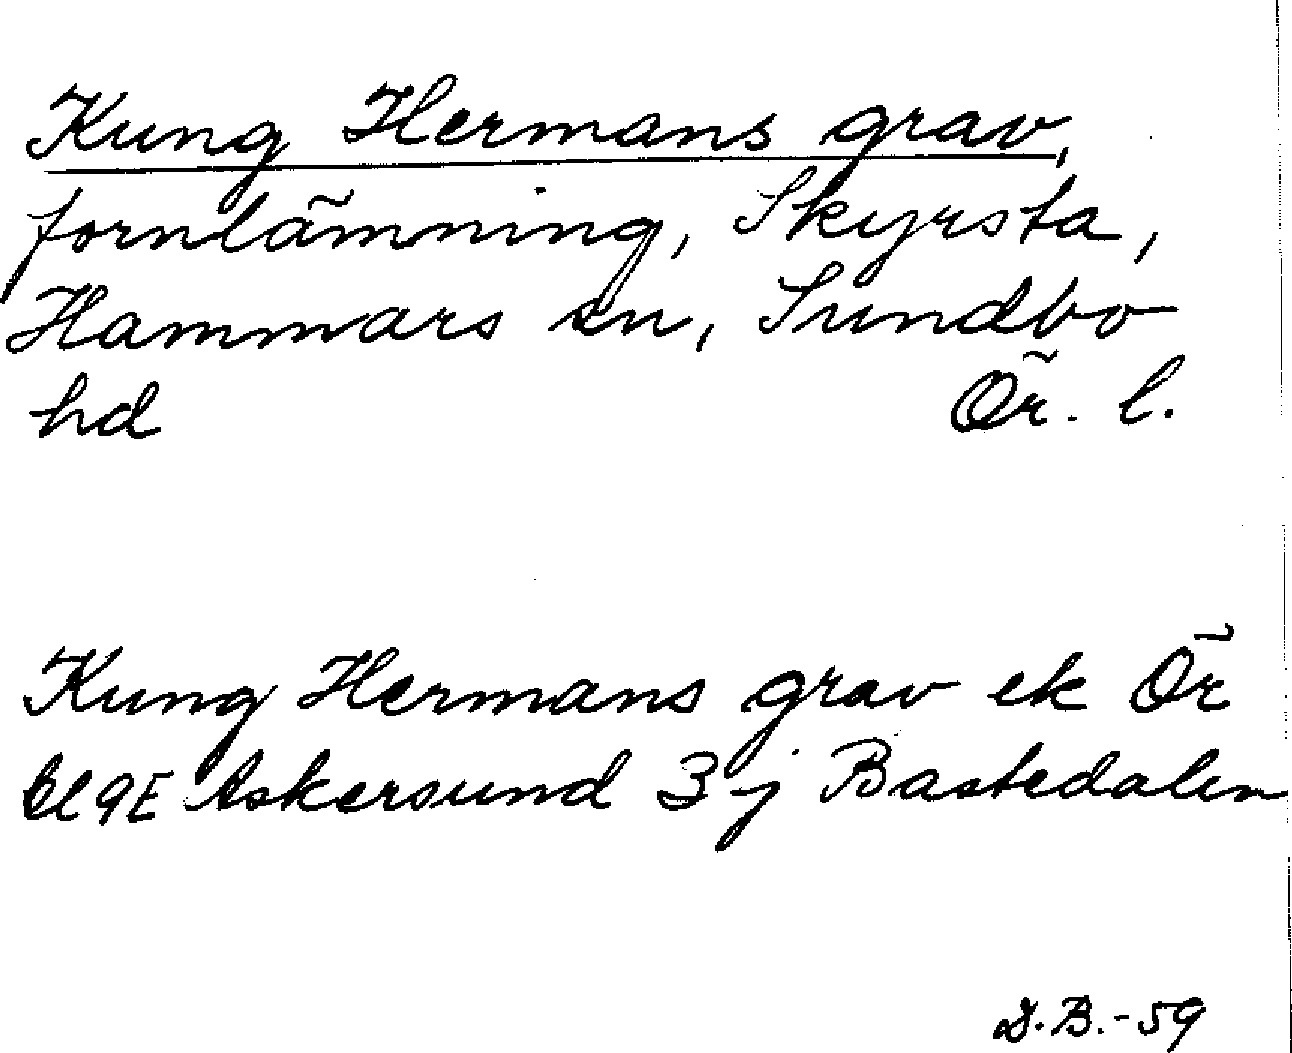 Kung Hermans grav,
fornlämning, Skyrsta,
Hammars sn, Sundbo
hd Ör. l.
Kung Hermans grav ek Ör
bl 9E Askersund 3 j Bastedalen
D.B.-59